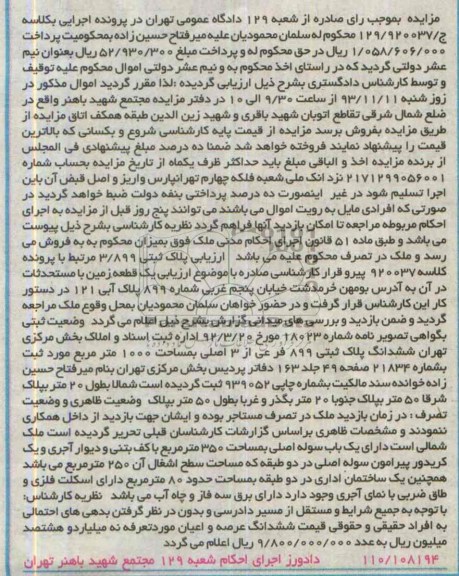 مزایده بموجب رای صادره از شعبه ۱۲۹ دادگاه عمومی تهران در پرونده اجرایی بکلاسه
ج/۱۲۹/۹۲۰۰۳۷ محکوم له سلمان محمودیان علیه میرفتاح حسین زاده بمحکومیت پرداخت
۱/۰۵۸/۶۰۶/۰۰۰ ریال در حق محکوم له و پرداخت مبلغ ۵۲/۹۳۰/۳۰۰ ریال بعنوان نیم
عشر دولتی گردید که در راستای اخذ محکوم به و نیم عشر دولتی اموال محکوم علیه توقیف
و توسط کارشناس دادگستری بشرح ذیل ارزیابی گردیده :لذا مقرر گردید اموال مذکور در
روز شنبه ۹۳/۱۱/۱۱ از ساعت ۹/۳۰ الی ۱۰ در دفتر مزایده مجتمع شهید باهنر واقع در
ضلع شمال شرقی تقاطع اتوبان شهید باقری و شهید زین الدین طبقه همکف اتاق مزایده از
طریق مزایده بفروش برسد مزایده از قیمت پایه کارشناسی شروع و بکسانی که بالاترین
قیمت را پیشنهاد نمایند فروخته خواهد شد ضمنا ده درصد مبلغ پیشنهادی فی المجلس
از برنده مزایده اخذ و الباقی مبلغ باید حداکثر ظرف یکماه از تاریخ مزایده بحساب شماره
۲۱۷۱۲۹۹۰۵۶۰۰۱ نزد انک ملی شعبه فلکه چهارم تهرانپارس واریز و اصل قبض آن باین
اجرا تسلیم شود در غیر اینصورت ده درصد پرداختی بنفه دولت ضبط خواهد گردید در
صورتی که افرادی مایل به رویت اموال می باشند می توانند پنج روز قبل از مزایده به اجرای
احکام مربوطه مراجعه تا امکان بازدید آنها فراهم گردد نظریه کارشناسی بشرح ذیل پیوست
می باشد و طبق ماده ۵۱ قانون اجرای احکام مدنی ملک فوق بمیزان محکوم به به فروش می
رسد و ملک در تصرف محکوم علیه می باشد ارزیابی پلاک ثبتی ۳/۸۹۹ مرتبط با پرونده
کلاسه ۹۲۰۰۳۷ پیرو قرار کارشناسی صادره با موضوع ارزیابی یک قطعه زمین با مستحدثات
در آن به آدرس بومهن خرمدشت خیابان پنجم غربی شماره ۸۹۹ پلاک آبی ۱۲۱ در دستور
کار این کارشناس قرار گرفت و در حضور خواهان سلمان محمودیان بمحل وقوع ملک مراجعه
گردید و ضمن بازدید و بررسی های میدانی گزارش بشرح ذیل اعلام می گردد وضعیت ثبتی
بگواهی تصویر نامه شماره ۱۸۰۲۳ مورخ ۹۲/۳/۲۰ اداره ثبت اسناد و املاک بخش مرکزی
تهران ششدانگ پلاک ثبتی ۸۹۹ فرعی از ۳ اصلی بمساحت ۱۰۰۰ متر مربع مورد ثبت
بشماره ۲۱۸۳۴ صفحه ۴۹ جلد ۱۶۳ دفاتر پردیس بخش مرکزی تهران بنام میرفتاح حسین
زاده خوانده سند مالکیت بشماره چاپی ۹۳۹۰۵۲ ثبت گردیده است شمالا بطول ۲۰ متر بپلاک
شرقا ۵۰ متر بپلاک جنوبا ۲۰ متر بگذر و غربا بطول ۵۰ متر بپلاک وضعیت ظاهری و وضعیت
تصرف : در زمان بازدید ملک در تصرف مستاجر بوده و ایشان جهت بازدید از داخل همکاری
ننمودند و مشخصات ظاهری براساس گزارشات کارشناسان قبلی تحریر گردیده است ملک
شمالی است دارای یک باب سوله اصلی بمساحت ۳۵۰ مترمربع با کف بتنی و دیوار آجری و یک
کریدور پیرامون سوله اصلی در دو طبقه که مساحت سطح اشغال آن ۲۵۰ مترمربع می باشد
همچنین یک ساختمان اداری در دو طبقه بمساحت حدود ۸۰ مترمربع دارای اسکلت فلزی و
طاق ضربی با نمای آجری وجود دارد دارای برق سه فاز و چاه آب می باشد نظریه کارشناس:
با توجه به جمیع شرایط و مستقل از مسیر دادرسی و بدون در نظر گرفتن بدهی های احتمالی
به افراد حقیقی و حقوقی قیمت ششدانگ عرصه و اعیان موردتعرفه نه میلیاردو هشتصد
میلیون ریال به عدد ۹/۸۰۰/۰۰۰/۰۰۰ ریال اعلام می گردد
۱۱۰/۱۰۸۱۹۴ دادورز اجرای احکام شعبه ۱۲۹ مجتمع شهید باهنر تهران